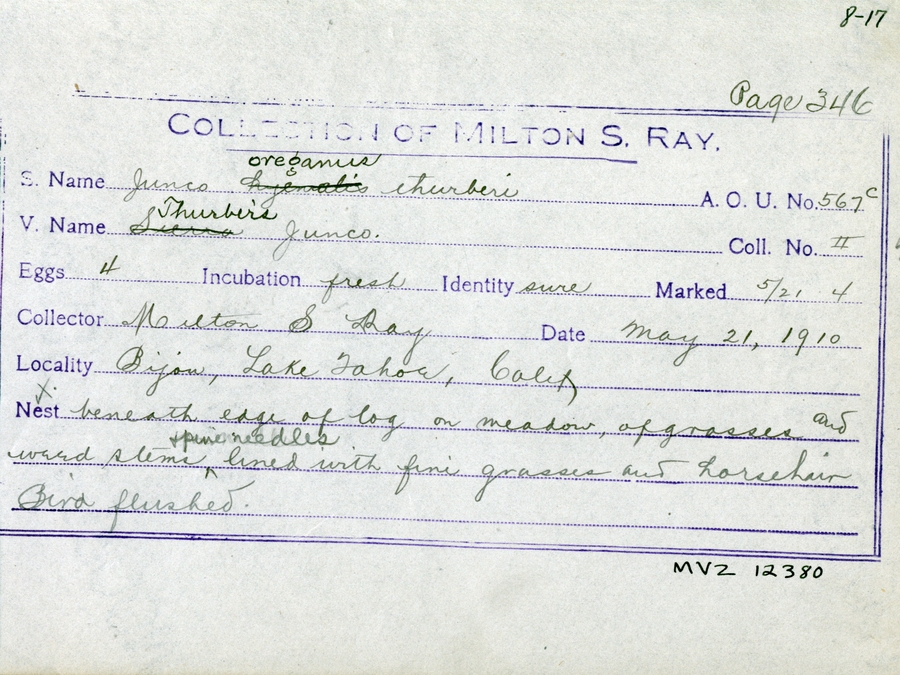 8-17
Page 346
COLLECTION OF MILTON S. RAY.
oreganus
S. Name Junco hyemalis thurberi A. O. U. No. 567c
Thurber's
V. Name Sierra Junco. Coll. No. II
Eggs 4 Incubation fresh Identity sure Marked 5/21 4
Collector Milton S Ray Date May 21, 1910
Locality Bijou, Lake Tahoe, Calif
x.
Nest beneath edge of log on meadow, of grasses and
+ pine needles
weed stems ^ lined with fine grasses and horsehair
Bird flushed.
MVZ 12380